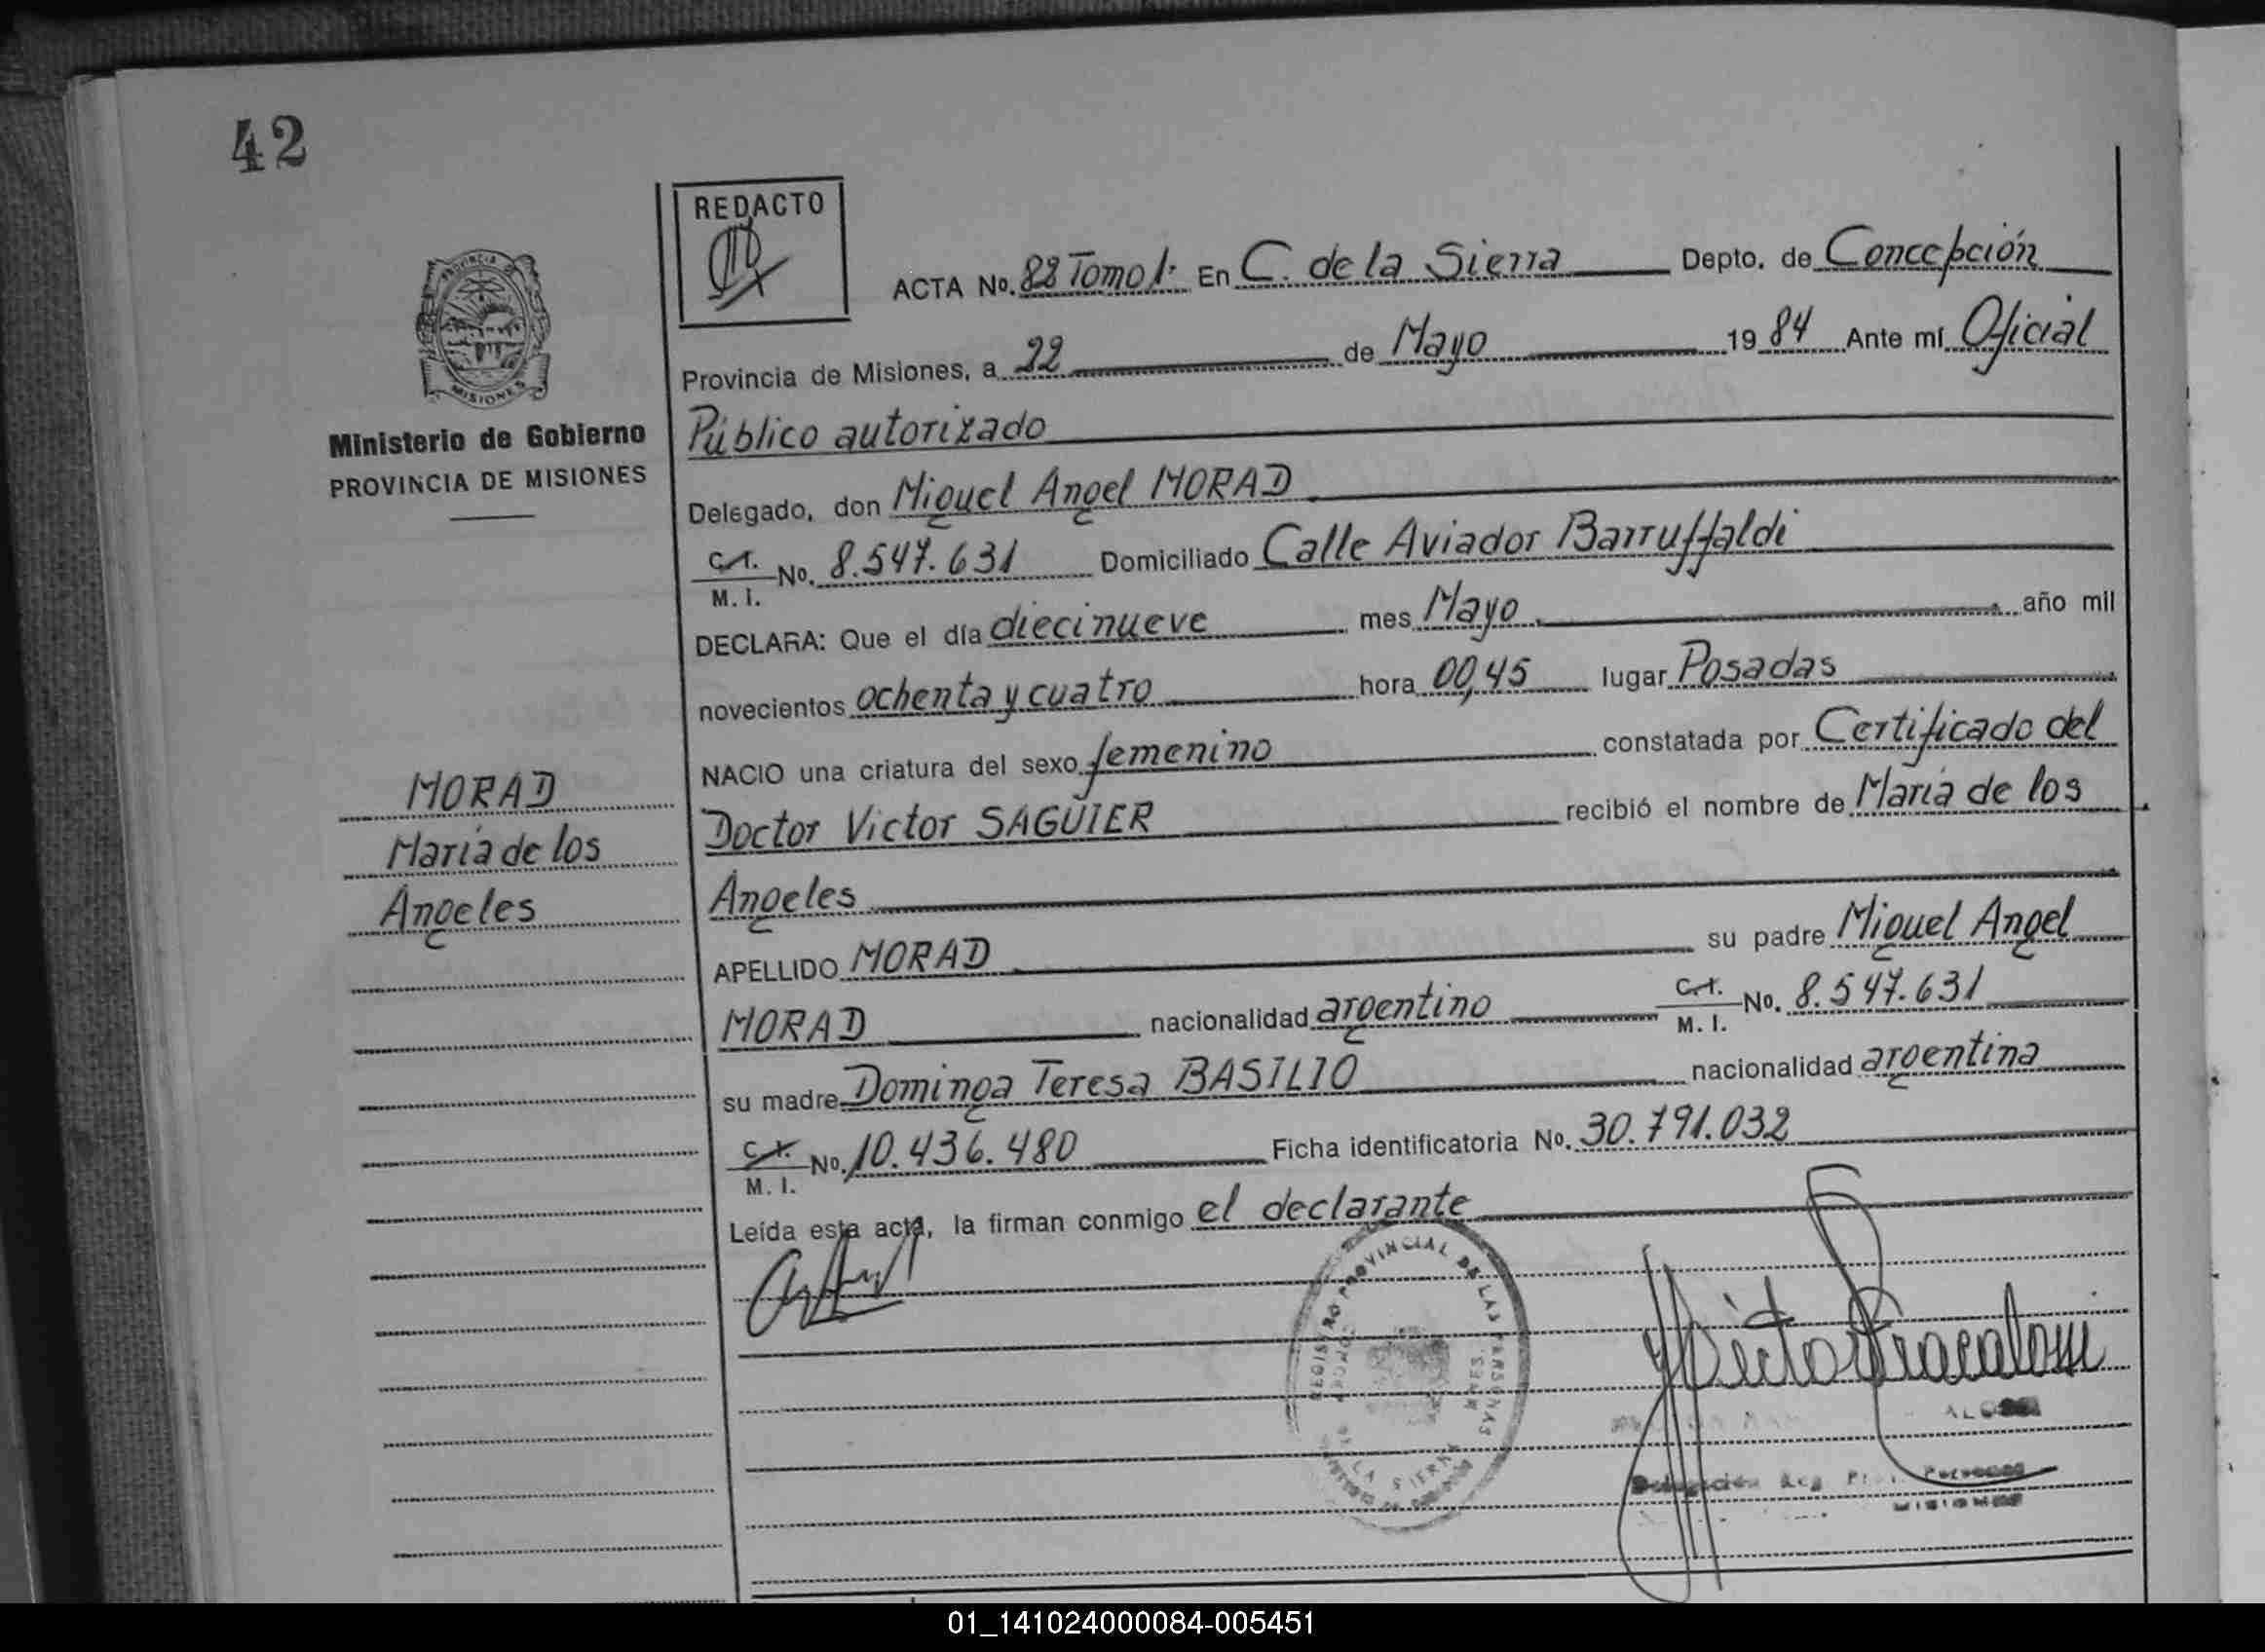 42
REDACTO
ACTA No. 88 Tomo 1: En C. de la Sierra Depto. de Concepción
Provincia de Misiones, a 22 de Mayo 1984 Ante mí Oficial
Público autorizado
Ministerio de Gobierno
PROVINCIA DE MISIONES
Delegado, don Miguel Angel MORAD
C.I. No. 8.547.631 Domiciliado Calle Aviador Barruffaldi
M. I.
DECLARA: Que el día diecinueve mes Mayo año mil
novecientos ochenta y cuatro hora 00,45 lugar Posadas
NACIO una criatura del sexo femenino constatada por Certificado del
MORAD
Doctor Victor SAGUIER recibió el nombre de María de los
María de los
Angeles
Angeles
APELLIDO MORAD su padre Miguel Angel
MORAD nacionalidad argentino C.I. No. 8.547.631
M. I.
su madre Dominga Teresa BASILIO nacionalidad argentina
C.I. No. 10.436.480 Ficha identificatoria No. 30.791.032
M. I.
Leída esta acta, la firman conmigo el declarante
REGISTRO PROVINCIAL DE LAS PERSONAS
DE LA SIERRA
MISIONES
01_141024000084-005451